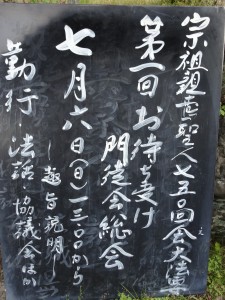 宗祖親鸞聖人七五〇回会大法要
え
第一回お待ち受け
門徒会総会
七月六日(日)一三:〇〇から
〜趣旨説明〜
勤行 法話・協議会ほか